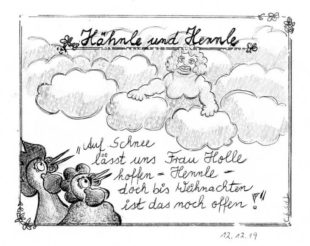 Hähnle und Hennle
„Auf Schnee
lässt uns Frau Holle
hoffen - Hennle -
doch bis Weihnachten
ist das noch offen!"
12.12.19